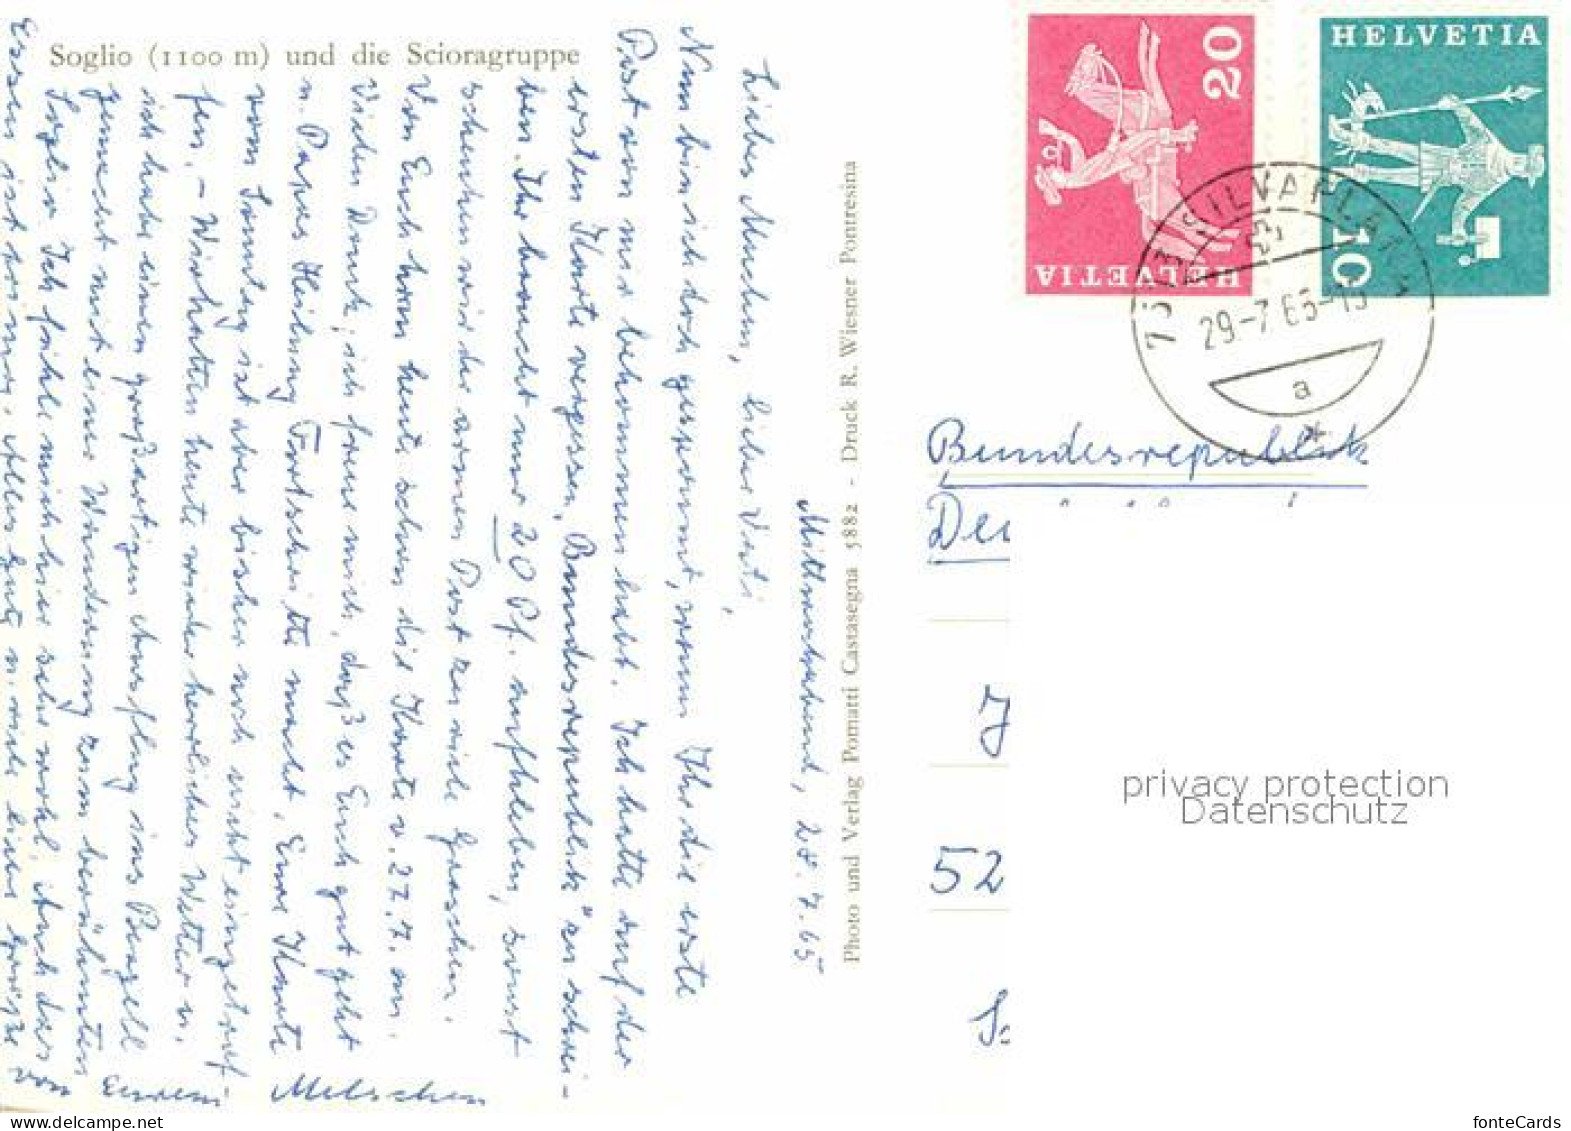 Soglio (1100 m) und die Scioragruppe
Photo und Verlag Pomatti Castasegna 5882 - Druck R. Wiesner Pontresina
Mittwochabend, 28.7.65
Liebes Muchen, lieber Vati,
Nun bin ich doch gespannt, wann Ihr die erste
Post von mir bekommen habt. Ich hatte auf der
ersten Karte vergessen, "Bundesrepublik" zu schrei-
ben. Ihr braucht nur 20 Pf. aufkleben, sonst
schenken wir der armen Post zu viele Groschen.
Von Euch kam heute schon die Karte v. 27.7. an.
Vielen Dank, ich freue mich, daß es Euch gut geht
u. Papas Heilung Fortschritte macht. Eure Karte
vom Sonntag ist aber bisher noch nicht eingetrof-
fen. - Wir hatten heute wieder herrliches Wetter u.
ich habe einen großartigen Ausflug ins Bergell
gemacht mit einer Wanderung zum berühmten
Soglio. Ich fühle mich hier sehr wohl, auch das
Essen ist prima. Alles Gute u. viele liebe Grüße
von Eurem
HELVETIA
20
HELVETIA
10
SILVAPLANA
29-7 65-15
a
Bundesrepublik
J
52
privacy protection
Datenschutz
www.delcampe.net
fonteCards